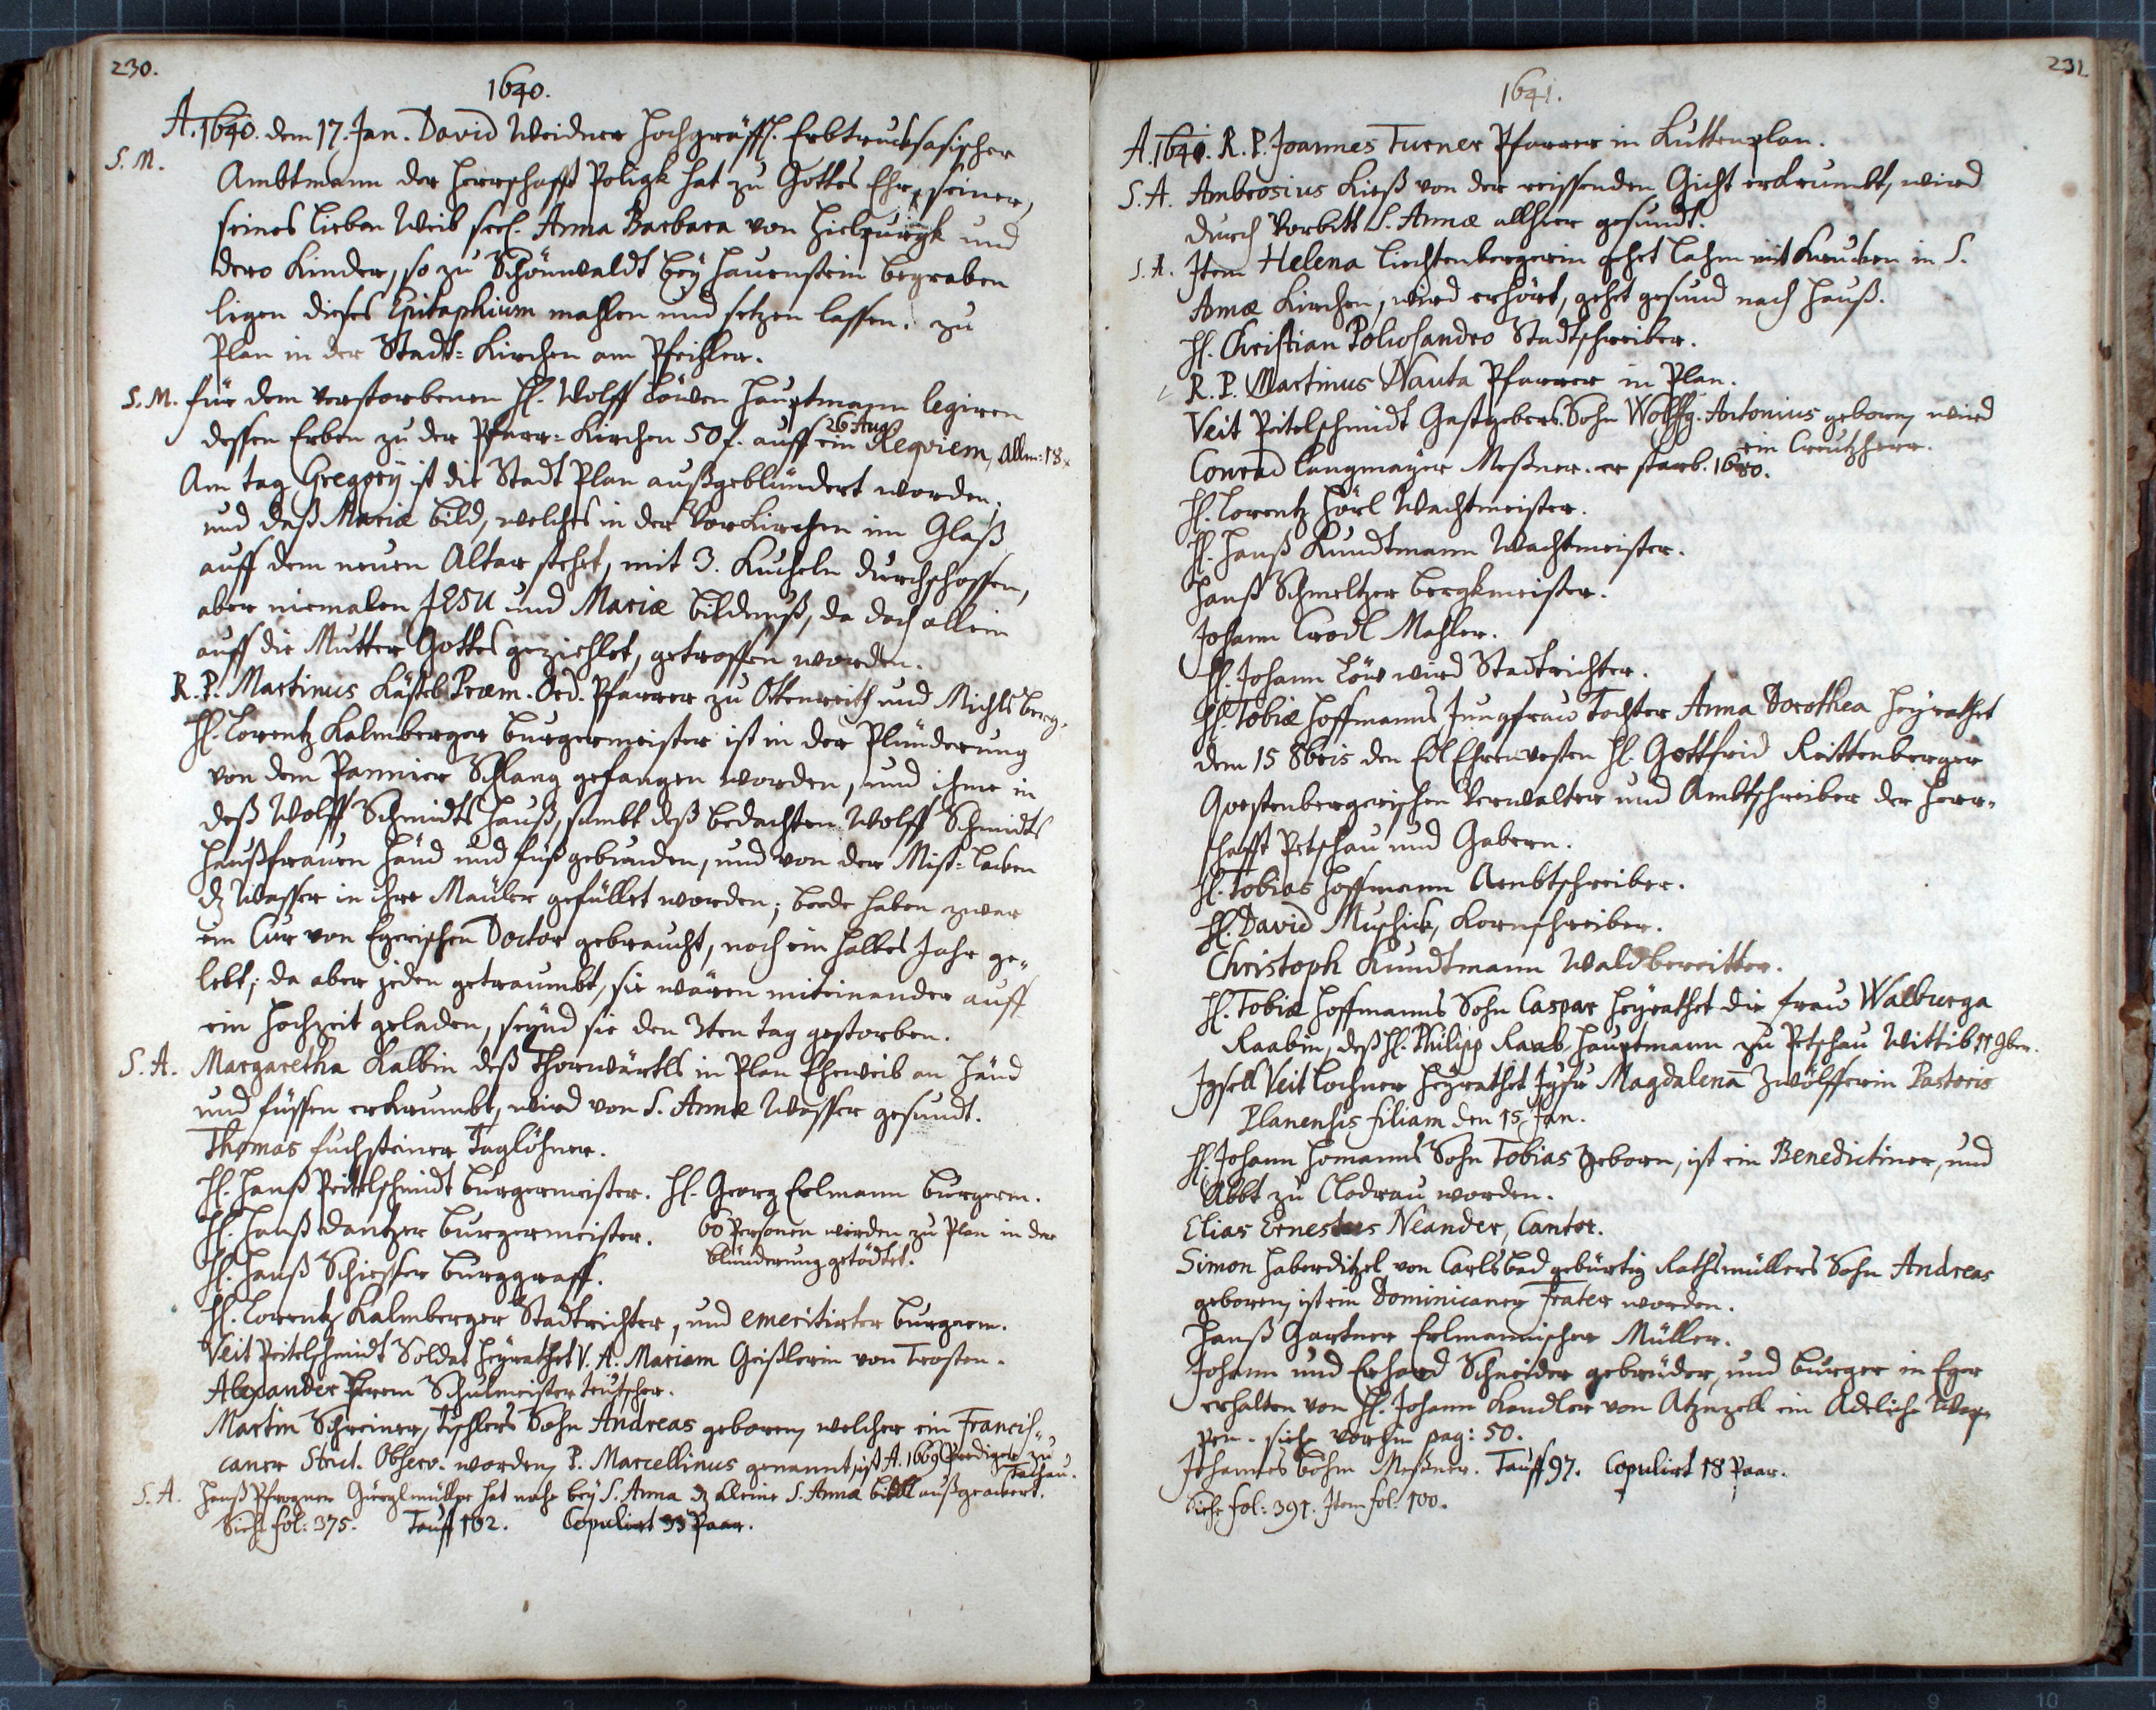 230.
1640.
A. 1640. dem 17. Jan. David Weidner Hochgräffl. Erbtrucksasischer
S. M. Ambtmann der Herrschafft Poligk hat zu Gottes Ehr, seiner,
seines lieben Weib seel. Anna Barbara von und
dero Kinder, so zu Schönwaldt bey Hauenstein begraben
ligen dieses Epitaphium mahlen und setzen lassen. zu
Plan in der Stadt-Kirchen am Pfeihler.
S. M. für dem verstorbenen H. Wolff Löwen Hauptmann legiren
dessen Erben zu der Pfarr-Kirchen 50 f. auff ein Requiem, Allm: 18 x
26 Aug.
Am tag Gregorij ist die Stadt Plan außgeblündert worden,
und daß Mariæ bild, welches in der Vorkirchen im Glaß
auff dem neuen Altar stehet, mit 3. Kucheln durchschossen,
aber niemalen JESU und Mariæ bildnuß, da doch allein
auff die Mutter Gottes geziehlet, getroffen worden.
R. P. Martinus Kästel Præm. Ord. Pfarrer zu Ottenreith und Michlsberg.
H. Lorentz Kalmberger burgermeister ist in der Plünderung
von dem Pannier Schlang gefangen worden, und ihme in
deß Wolff Schmidts Hauß, sambt deß bedachten Wolff Schmidts
Haußfrauen Händ und füß gebunden, und von der Mist-lacken
dz Wasser in ihre Mäuler gefüllet worden; beede haben zwar
ein Cur von Egerischen Doctor gebraucht, noch ein halbes Jahr ge-
lebt; da aber jeden getraumbt, sie wären miteinander auff
ein Hochzeit geladen, seynd sie den 3ten tag gestorben.
S. A. Margaretha Kalbin deß Thorwärtls in Plan Eheweib an Händ
und füssen erkrumbt, wird von S. Annæ Wasser gesundt.
Thomas fuchsteiner Taglöhner.
H. Hanß Peitelschmidt burgermeister. H. Georg Erlmann burgerm.
H. Hanß Dantzer burgermeister. 60 Personen werden zu Plan in der
blünderung getödtet.
H. Hanß Schiesser burggraff.
H. Lorentz Kalmberger Stadtrichter, und emeritirter burgerm.
Veit Peitelschmidt Soldat heyrathet V. A. Mariam Geißlerin von Trosten.
Alexander Schulmeister teutscher.
Martin Schreiner, Tischlers Sohn Andreas geboren, welcher ein Francis-
caner Strict. Observ. worden, P. Marcellinus genannt, ist A. 1669 Prediger zu
Tachau.
S. A. Hanß Pfrogner Gürglmüller hat nahe bey S. Anna dz kleine S. Annæ bildl außgeackert.
Siehe fol: 375. Tauff 102. Copulirt 33 Paar.
231
1641.
A. 1641. R. P. Joannes Turner Pfarrer in Kuttenplan.
S. A. Ambrosius Kieß von der reissenden Gicht erkrumbt, wird
durch Vorbitt S. Annæ allhier gesundt.
S. A. Item Helena Liechtenbergerin gehet lahm mit Krucken in S.
Annæ Kirchen, wird erhört, gehet gesund nach Hauß.
H. Christian Polusandro Stadtschreiber.
R. P. Martinus Nauta Pfarrer in Plan.
Veit Peitelschmidt Gastgebers Sohn Wolffg. Antonius geboren, wird
ein Creutzherr.
Conrad Langmayer Meßner. er starb. 1680.
H. Lorentz Hörl Wachtmeister.
H. Hanß Kundtmann Wachtmeister.
Hanß Schmeltzer bergkmeister.
Johann Crodl Mahler.
H. Johann Löw wird Stadtrichter.
H. Tobiæ Hoffmanns Jungfrau Tochter Anna Dorothea heyrathet
dem 15 8bris den Edl Ehrenvesten H. Gottfrid Reittenberger
Questenbergerischen Verwalter und Ambtschreiber der Herr-
schafft Petschau und Gabern.
H. Tobias Hoffmann Ambtschreiber.
H. David Muschick, Kornschreiber.
Christoph Kundtmann Waldbereitter.
H. Tobiæ Hoffmanns Sohn Caspar heyrathet die frau Walburga
Raabin, deß H. Philipp Raab Hauptmann zu Petschau Wittib 11 9ber.
Jgsell Veit Lochner heyrathet Jgfr Magdalena Zwölfferin Pastoris
Planensis filiam den 15 Jan.
H. Johann Homanns Sohn Tobias geborn, ist ein Benedictiner, und
Abbt zu Cladrau worden.
Elias Ernestus Neander, Cantor.
Simon Haberditzel von Carlsbad gebürtig Rathsmüllers Sohn Andreas
geboren, ist ein Dominicaner Frater worden.
Hanß Gartner Erlmannischer Müller.
Johann und Erhard Schneider gebrüder, und burger in Eger
erhalten von H. Johann Kandler von Atznzell ein Adeliche Wap-
pen. siehe vorhin pag: 50.
Johannes böhm Meßner. Tauff 97. Copulirt 18 Paar.
Siehe fol: 391. Item fol: 100.